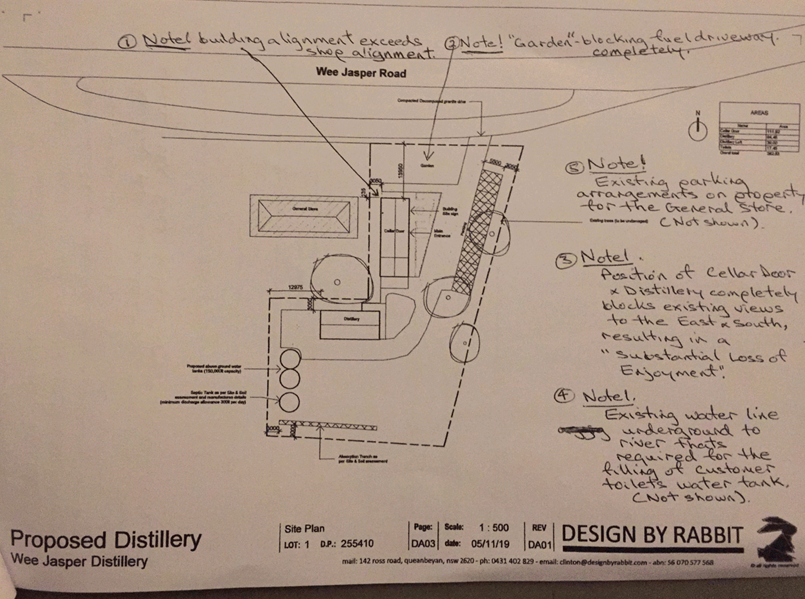 ① Note! building alignment exceeds
shop alignment.
② Note! "Garden"-blocking fuel driveway.
completely.
Wee Jasper Road
Compacted Decomposed granite drive
N
AREAS
Name Area
Cellar Door
Distillery
Distillery Loft
Toilets
Garden
General Store
Building
Main
Entrance
Cellar Door
12975
Distillery
Existing trees (to be undamaged)
Proposed above ground water
tanks (150,000lt capacity)
Septic Tank as per Site & Soil
assessment and manufactures details
(minimum discharge allowance per day)
Absorption Trench as
per Site & Soil assessment
⑤ Note!
Existing parking
arrangements on property
for the General Store.
(Not shown).
③ Note!.
Position of Cellar Door
& Distillery completely
blocks existing views
to the East & South,
resulting in a
"Substantial Loss of
Enjoyment".
④ Note!.
Existing water line
underground to
river thats
required for the
filling of customer
toilets water tank.
(Not shown).
Proposed Distillery
Wee Jasper Distillery
Site Plan
LOT: 1 D.P.: 255410
Page: Scale: 1 : 500 REV
DA03 date: 05/11/19 DA01
DESIGN BY RABBIT
© all rights reserved
mail: 142 ross road, queanbeyan, nsw 2620 - ph: 0431 402 829 - email: clinton@designbyrabbit.com - abn: 56 070 577 568